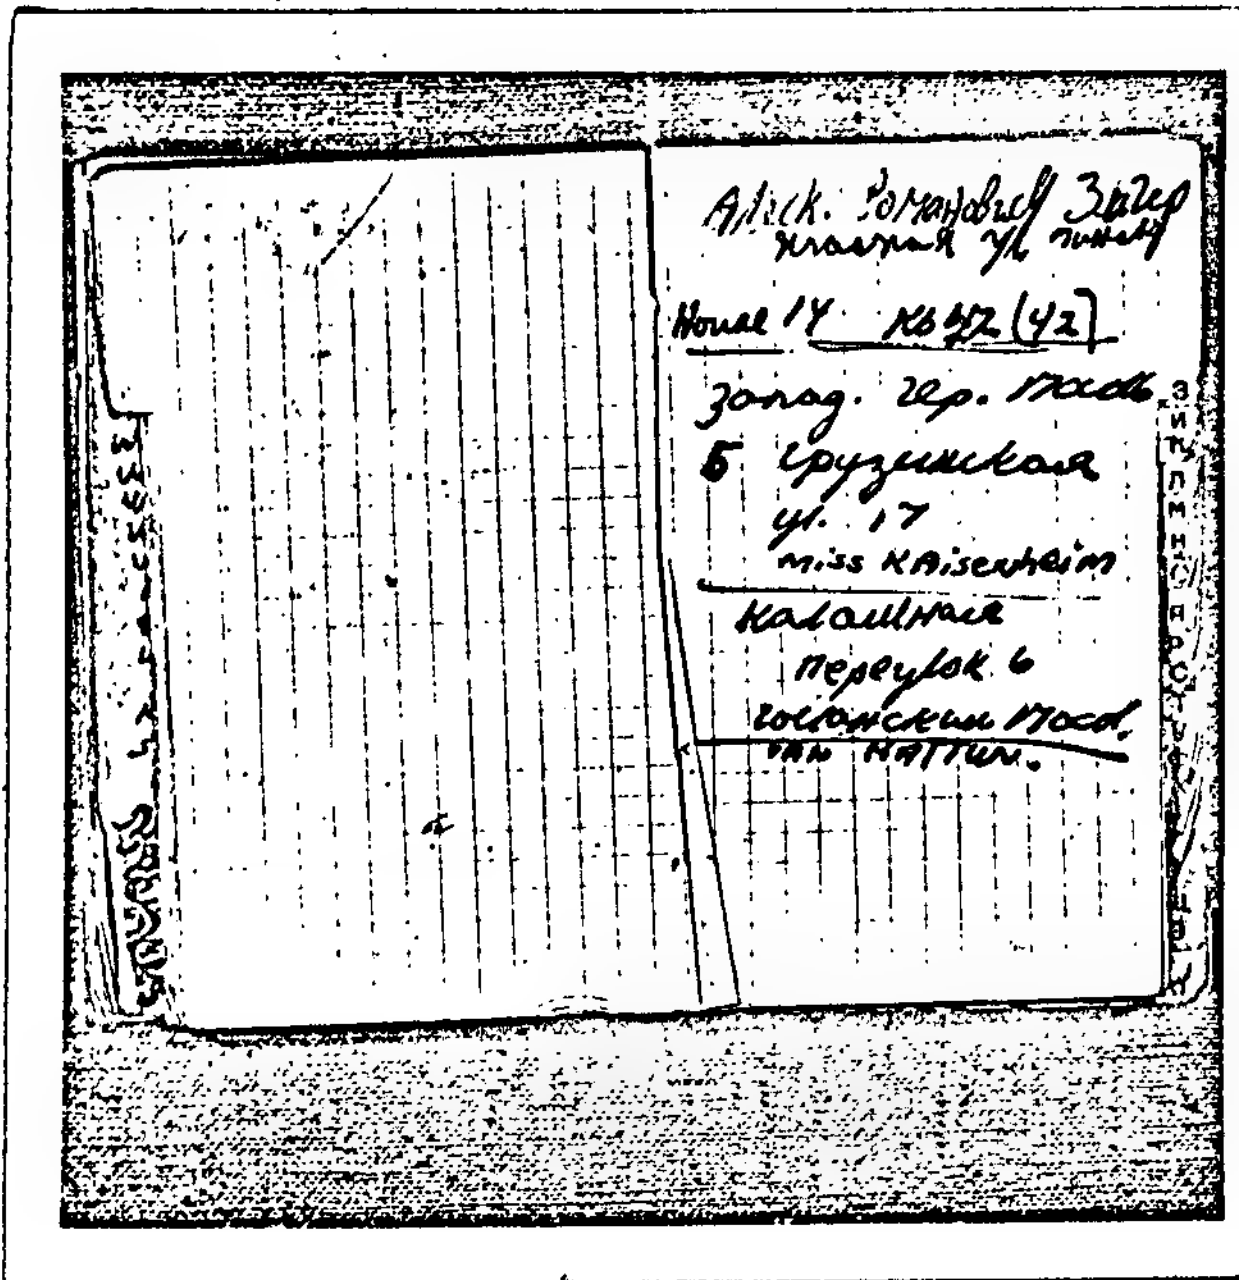 Алек. Романович Зигер
Красная ул Минск
House 14 кв 42 (42]
Запад. Гер. Посол.
Б Грузинская
ул. 17
Miss KAisenheim
Калашная
переулок 6
Голланский Посол.
VAN HATTUM.
З
И
К
Л
М
Н
О
П
Р
С